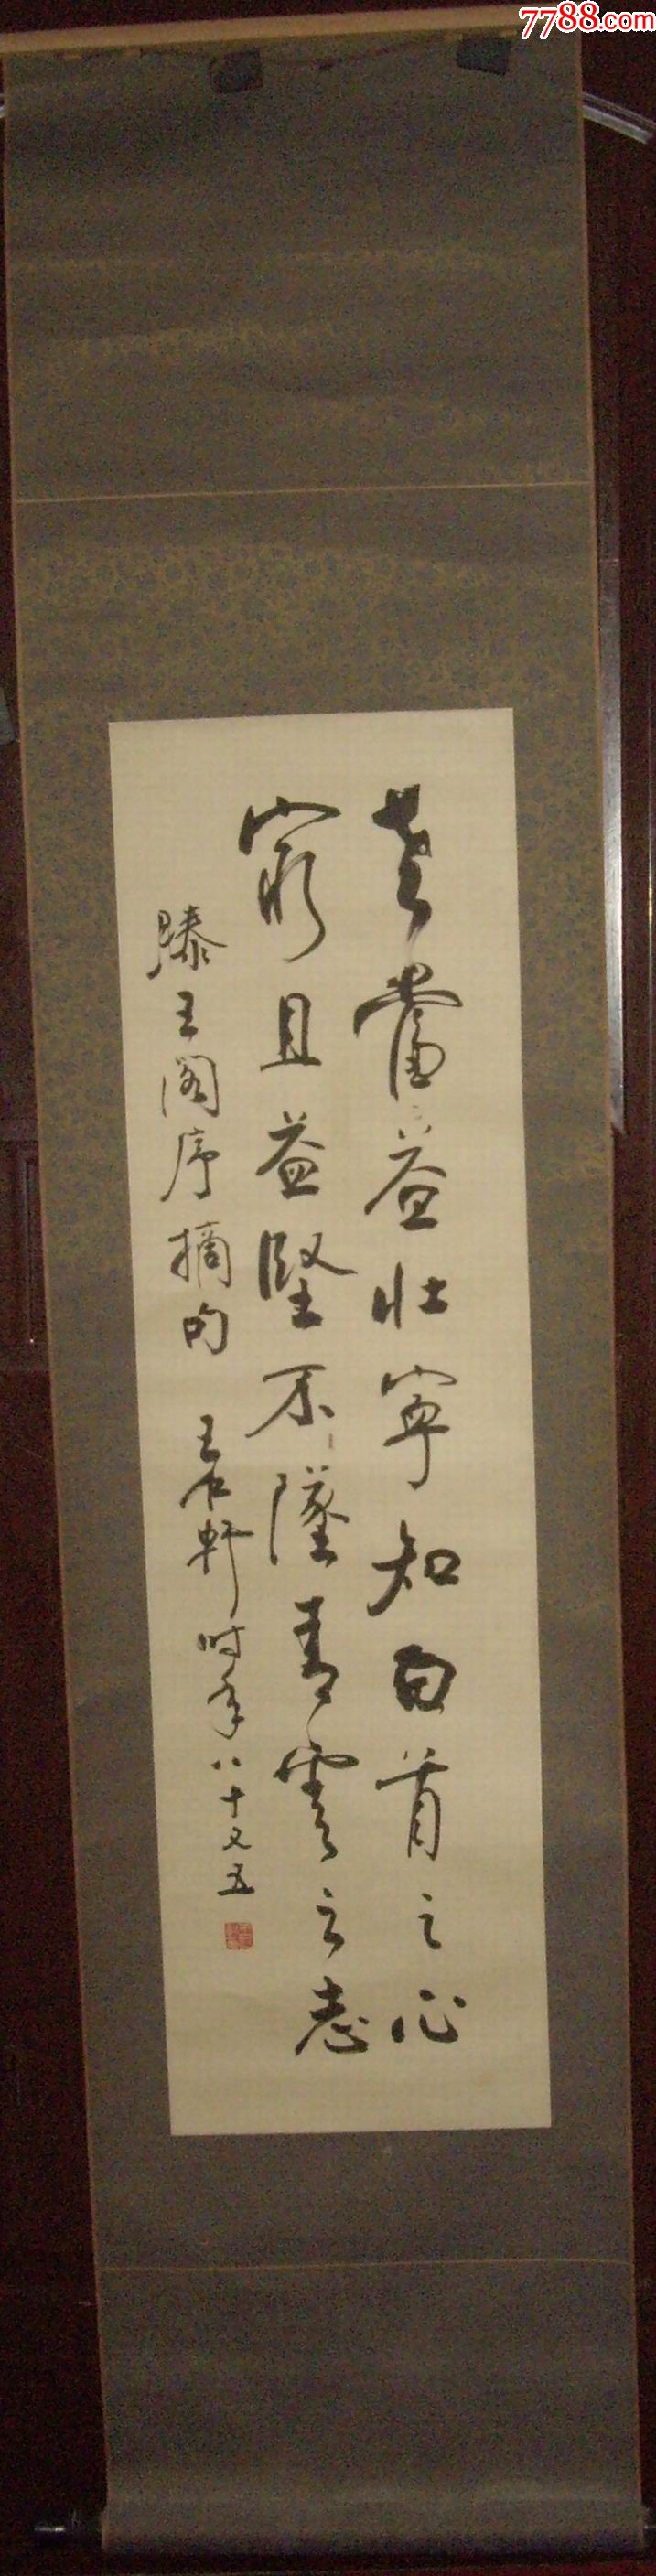 7788.com
老當益壯寧知白首之心
窮且益堅不墜青雲之志
滕王阁序摘句 王 軒时年八十又五